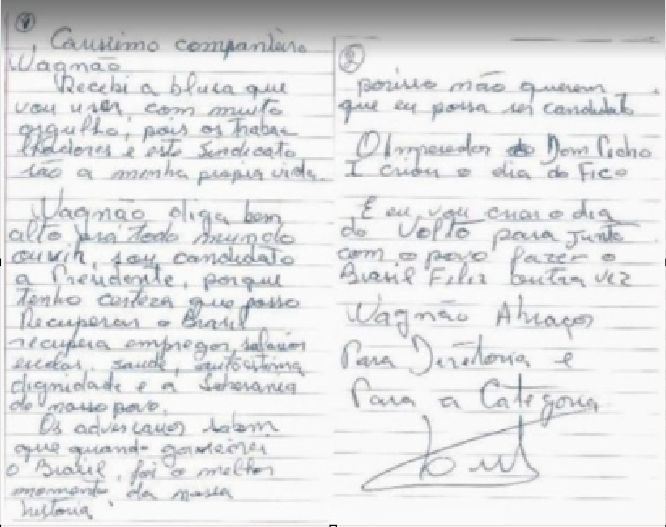 1
Carissimo companheiro
Wagnão
Recebi a blusa que
vou usar, com muito
orgulho, pois os traba-
lhadores e este Sindicato
são a minha propria vida.
Wagnão diga bem
alto prá todo mundo
ouvir, sou candidato
a Presidente, porque
tenho certeza que posso
Recuperar o Brasil
recupera empregos, salários
escolas, saude, autoestima
dignidade e a Soberania
do nosso povo.
Os adversarios sabem
que quando governei
o Brasil, foi o melhor
momento da nossa
historia
2
porisso não querem
que eu possa ser candidato
O Imperador Dom Pedro
I criou o dia do Fico
E eu vou criar o dia
do Volto para junto
com o povo fazer o
Brasil Feliz outra vez
Wagnão Abraços
Para Diretoria e
Para a Categoria